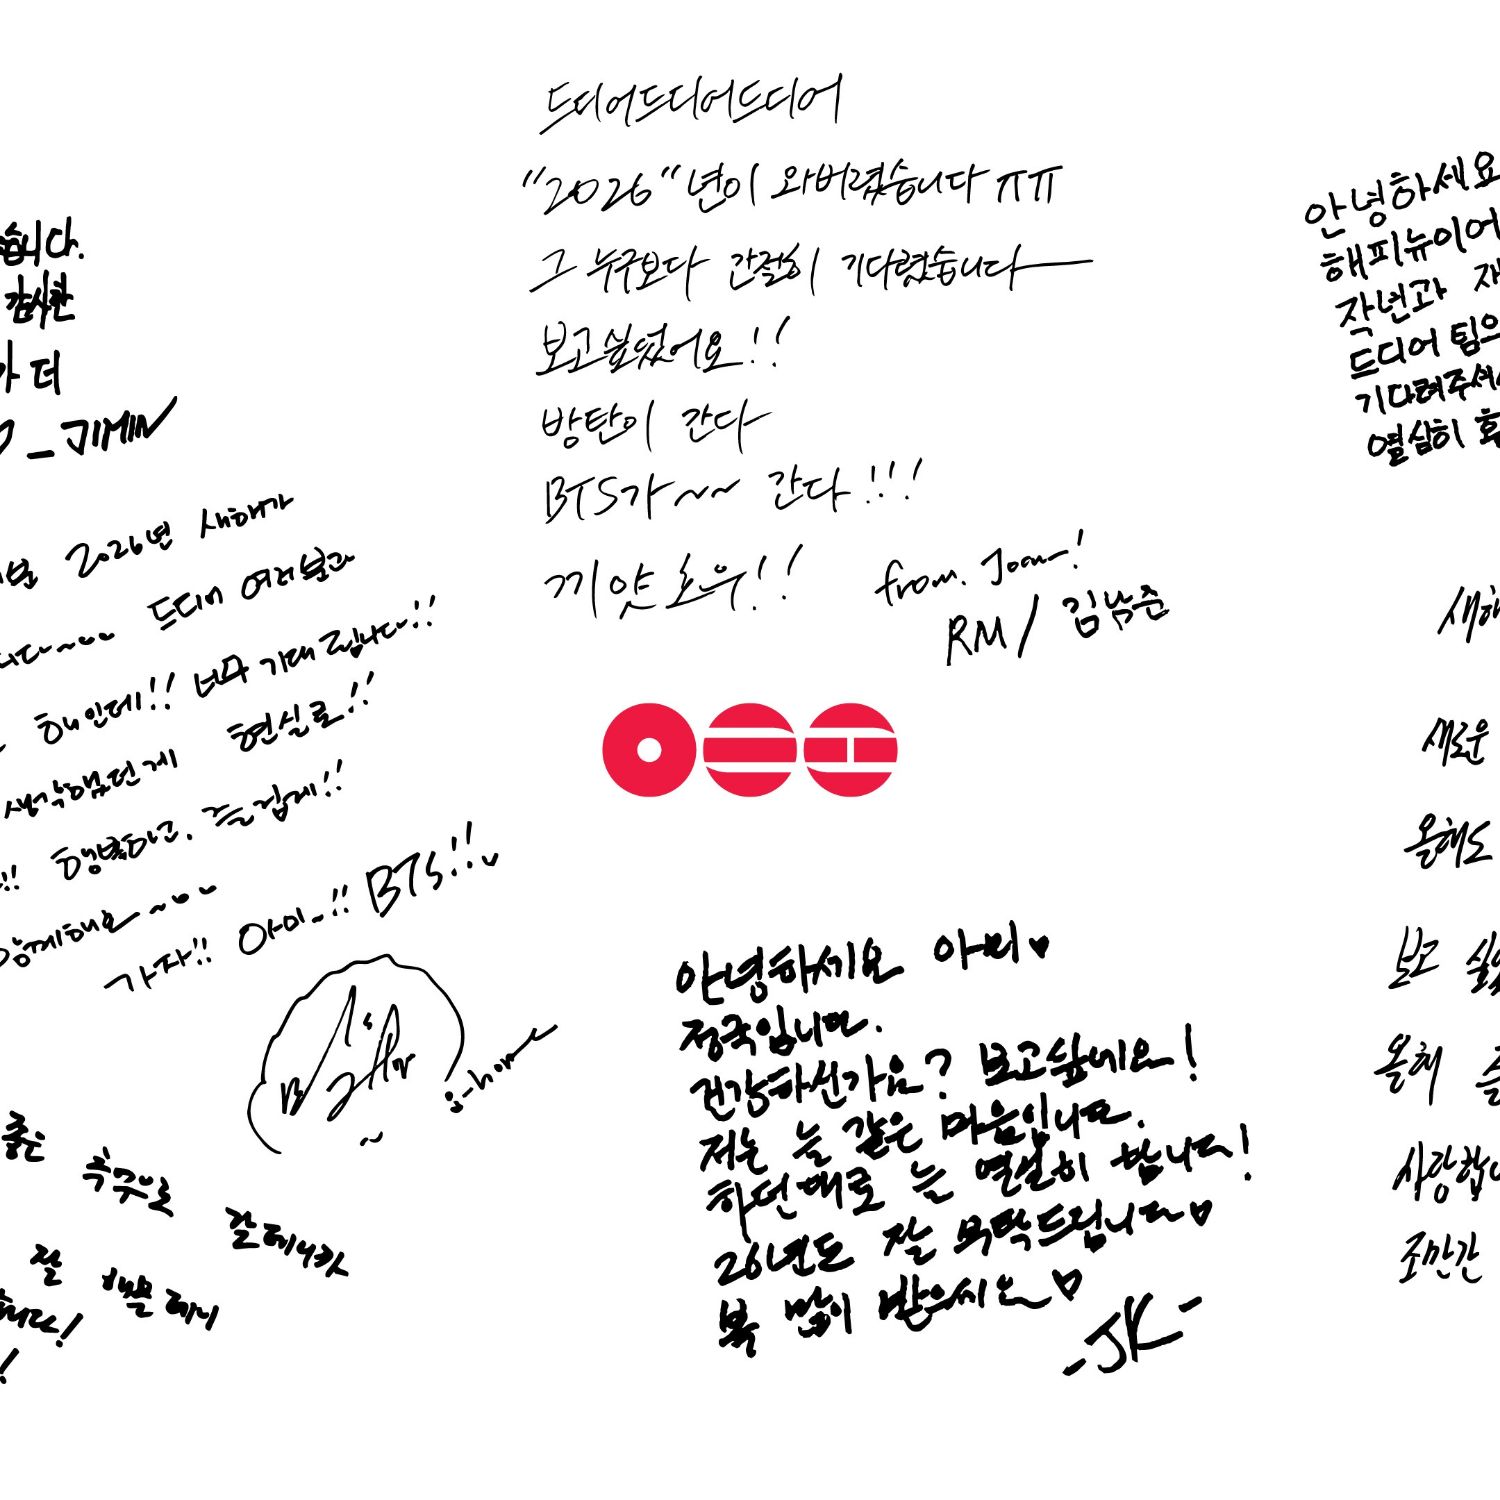 습니다.
감사한
가 더
- JIMIN
2026년 새해가
드디어 여러분과
해인데!! 너무 기대됩니다!!
생각했던게 현실로!!
행복하고, 즐겁게!!
함께해요~
가자!! 아미~!! BTS!!
j-hope
좋은 추억으로
잘
드디어드디어드디어
"2026"년이 와버렸습니다 ㅠㅠ
그 누구보다 간절히 기다렸습니다
보고싶었어요!!
방탄이 간다
BTS가~~ 간다!!!
끼얏호우!!
from. Joon!
RM/김남준
안녕하세요 아미♥
정국입니다.
건강하신가요? 보고슾네요!
저는 늘 같은 마음입니다.
하던대로 늘 열심히 합니다!
26년도 잘 부탁드립니다♡
복 많이 받으씨요♡
-JK-
안녕하세요
해피뉴이어
작년과
드디어 팀의
기다려주셔서
열심히
새해
새로운
올해도
보고
올해
사랑합니
조만간